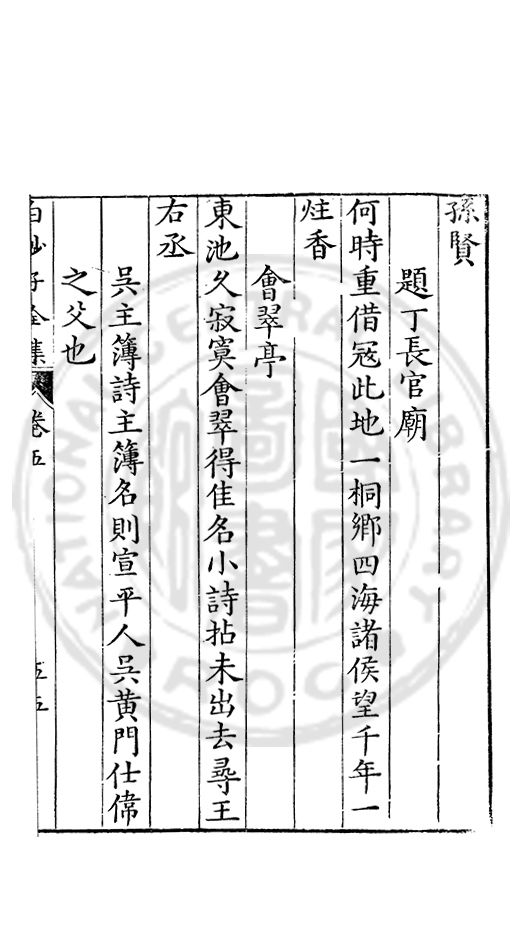 孫賢
題丁長官廟
何時重借冦此地一桐鄉四海諸侯望千年一
炷香
會翠亭
東池久寂寞會翠得佳名小詩拈未出去尋王
右丞
吳主簿詩主簿名則宣平人吳黃門仕偉
之父也
白沙子全集 卷五 五五